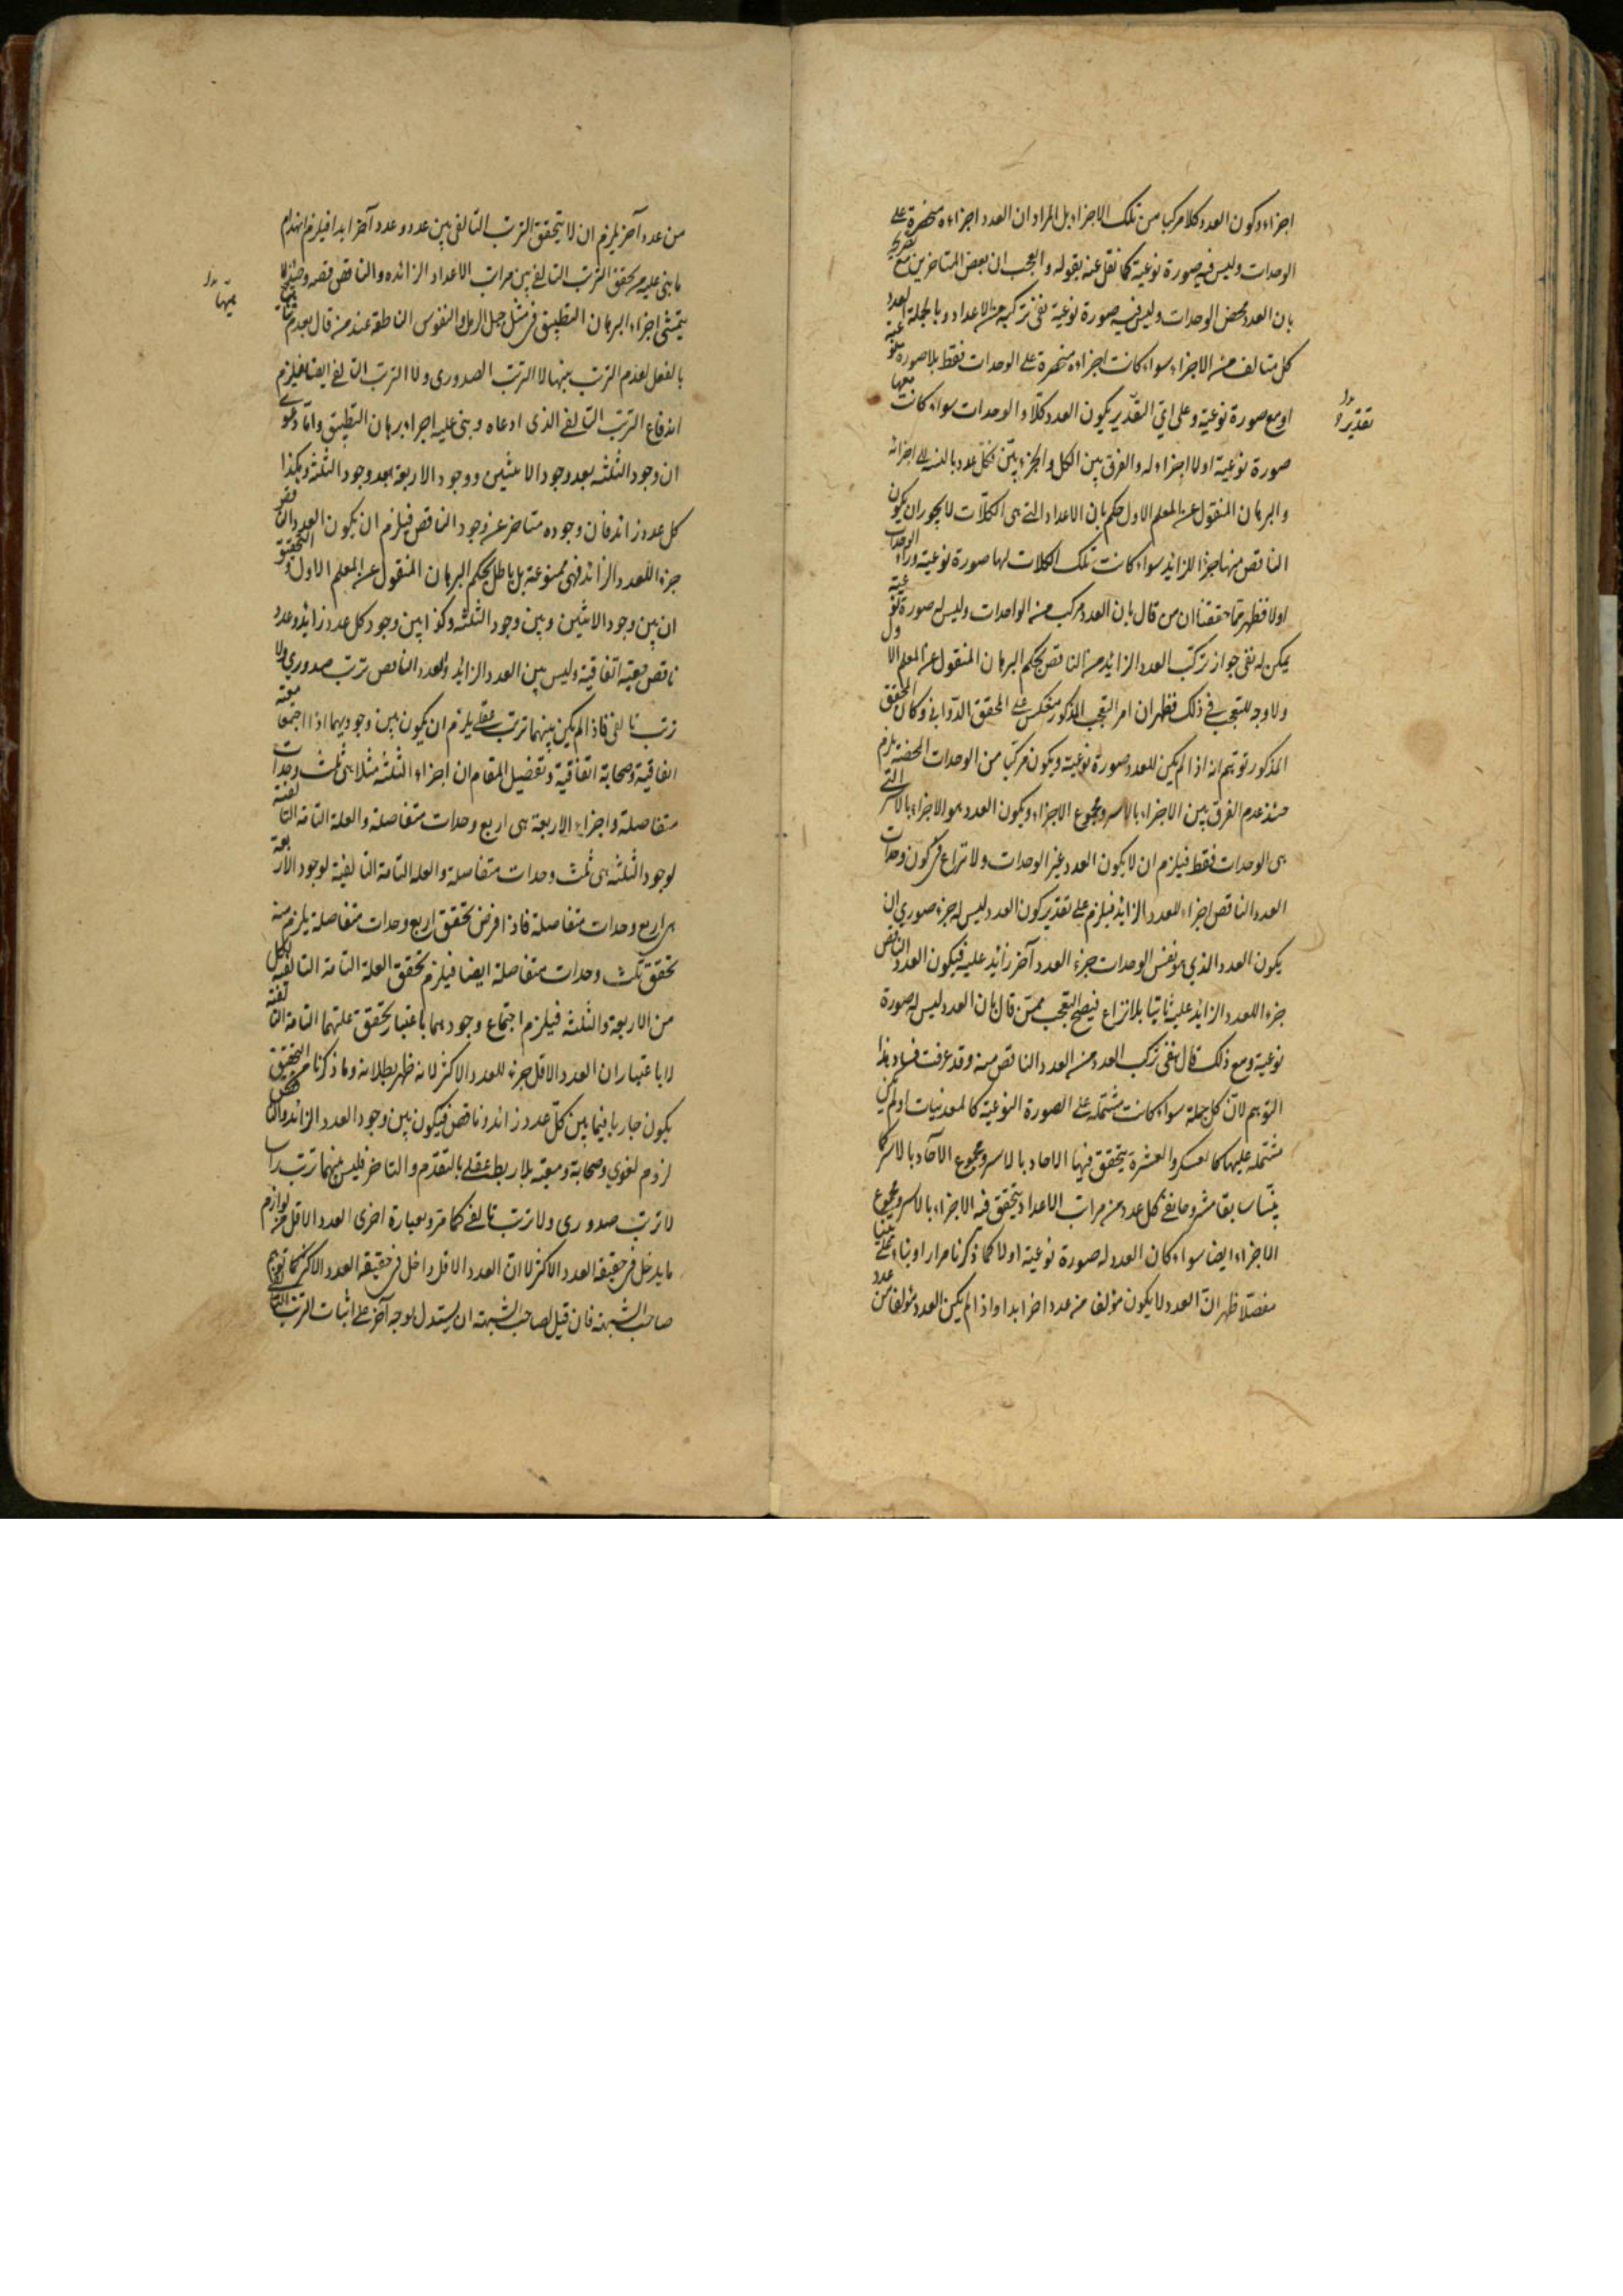 اجزاء وكون العدد كلا مركبا من تلك الاجزاء بل المراد ان العدد اجزاءه منحصرة على
الوحدات وليس فيه صورة نوعية كما نقل عنه بقوله والعجب ان بعض المتاخرين مع تصريحه
بان العدد محض الوحدات وليس فيه صورة نوعية نفى تركبه من الاعداد وبالجملة العدد
كل متالف من الاجزاء سواء كانت اجزاءه منحصرة على الوحدات فقط بلا صورة نوعية
او مع صورة نوعية وعلى اي التقدير يكون العدد كلا والوحدات سواء كانت معها
تقدير
صورة نوعية او لا اجزاء له والفرق بين الكل والجزء بين فكل عدد بالنسبة الى اجزائه
والبرهان المنقول عن المعلم الاول حكم بان الاعداد التي هي الكلات لا يجوز ان يكون
الناقص منها جزء للزائد سواء كانت تلك الكلات لها صورة نوعية وراء الوحدات
اولا فظهر مما حققنا ان من قال بان العدد مركب من الواحدات وليس له صورة نوعية
يمكن له نفى جواز تركب العدد الزائد من الناقص بحكم البرهان المنقول عن المعلم الاول
ولا وجه للتعجب في ذلك فظهر ان امر التعجب المذكور منعكس على المحقق الدواني وكان المحقق
المذكور توهم انه اذا لم يكن للعدد صورة نوعية ويكون مركبا من الوحدات المحضة يلزم
حينئذ عدم الفرق بين الاجزاء بالاسر ومجموع الاجزاء ويكون العدد هو الاجزاء بالاسر التي
هى الوحدات فقط فيلزم ان لا يكون العدد غير الوحدات ولا نزاع في كون وحدات
العدد الناقص اجزاء للعدد الزائد فيلزم على تقدير كون العدد ليس له جزء صوري ان
يكون العدد الذي هو نفس الوحدات جزء العدد آخر زائد عليه فيكون العدد الناقص
جزء اللعدد الزائد عليه ثابتا بلا نزاع فيصح التعجب ممن قال بان العدد ليس له صورة
نوعية ومع ذلك قال بنفى تركب العدد من العدد الناقص منه وقد عرفت فساد هذا
التوهم لان كل جملة سواء كانت مشتملة على الصورة النوعية كالمعدنيات او لم يكن
مشتملة عليها كالعسكر والعشرة يتحقق فيها الاحاد بالاسر ومجموع الآحاد بالاسر كما
بينا سابقا مشروحا ففى كل عدد من مراتب الاعداد يتحقق فيه الاجزاء بالاسر ومجموع
الاجزاء ايضا سواء كان العدد له صورة نوعية اولا كما ذكرنا مرارا وبناء على
مفصلا ظهر ان العدد لا يكون مؤلفا من عدد اخر ابدا واذا لم يكن العدد مؤلفا من عدد
من عدد آخر يلزم ان لا يتحقق الترتب التالفى بين عدد وعدد آخر ابدا فيلزم انهدام
ما بنى عليه من تحقق الترتب التالفى بين مراتب الاعداد الزائده والناقص فقه وحينئذ لا
يتمشى اجزاء البرهان التطبيق في مثل حبل الرمل والنفوس الناطقة عند من قال بعدم
بالفعل لعدم الترتب بينها لا الترتب الصدورى ولا الترتب التالفى ايضا فيلزم
اندفاع الترتب التالفى الذى ادعاه وبنى عليه اجراء برهان التطبيق واما دعوى
ان وجود الثلثه بعد وجود الاثنين ووجود الاربعة بعد وجود الثلثة وهكذا
كل عدد زائد فان وجوده متاخر عن وجود الناقص فيلزم ان يكون العدد الناقص
جزء اللعدد الزائد فهى ممنوعة بل باطل بحكم البرهان المنقول عن المعلم الاول والتحقيق
ان بين وجود الاثنين وبين وجود الثلثة وكذا بين وجود كل عدد زائد وعدد
ناقص معية اتفاقية وليس بين العدد الزائد والعدد الناقص ترتب صدوري ولا
ترتب تالفى فاذا لم يكن بينهما ترتب عقلى يلزم ان يكون بين وجوديهما اذا اجتمعا معية
اتفاقية وصحابة اتفاقية وتفصيل المقام ان اجزاء الثلثة مثلا هى ثلث وحدات
متفاصلة واجزاء الاربعة هى اربع وحدات متفاصلة والعلة التامة التالفية
لوجود الثلثه هى ثلث وحدات متفاصلة والعلة التامة التالفية لوجود الاربعة
هى اربع وحدات متفاصلة فاذا فرض تحقق اربع وحدات متفاصلة يلزم منه
تحقق ثلث وحدات متفاصلة ايضا فيلزم تحقق العلة التامة التالفية لكل
من الاربعة والثلثه فيلزم اجتماع وجودهما باعتبار تحقق علتهما التامة التالفية
لا باعتبار ان العدد الاقل جزء للعدد الاكثر لانه ظهر بطلانه وما ذكرنا من التحقيق
يكون جاريا فيما بين كل عدد زائد وناقص فيكون بين وجود العدد الزائد والناقص
لزوم لغوي وصحابة ومعية بلا ربط عقلى بالتقدم والتاخر فليس بينهما ترتب راسا
لا ترتب صدورى ولا ترتب تالفى كما مر وبعبارة اخرى العدد الاقل من لوازم
ما يدخل في حقيقة العدد الاكثر لا ان العدد الاقل داخل في حقيقة العدد الاكثر كما توهم
صاحب الشبهة فان قيل لصاحب الشبهة ان يستدل بوجه آخر على اثبات الترتب التالفى